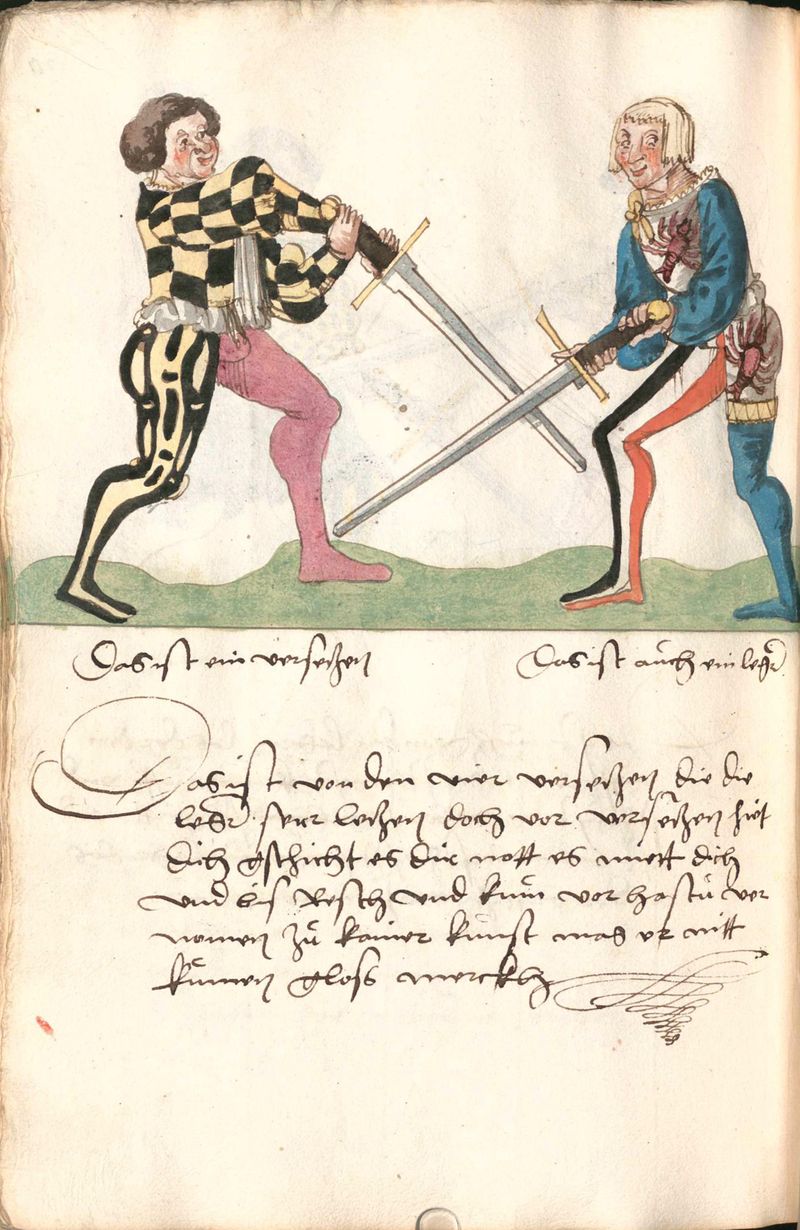 Das ist ein verseczen
Das ist auch ein leger
Das ist von den vier verseczen die die
leger seer leczen doch vor verseczen hiet
dich gschicht es dir nott es muett dich
und bis Resch und kum vor hastu ver
nomen zu kainer kunst mag er nitt
kumen gloss merckh